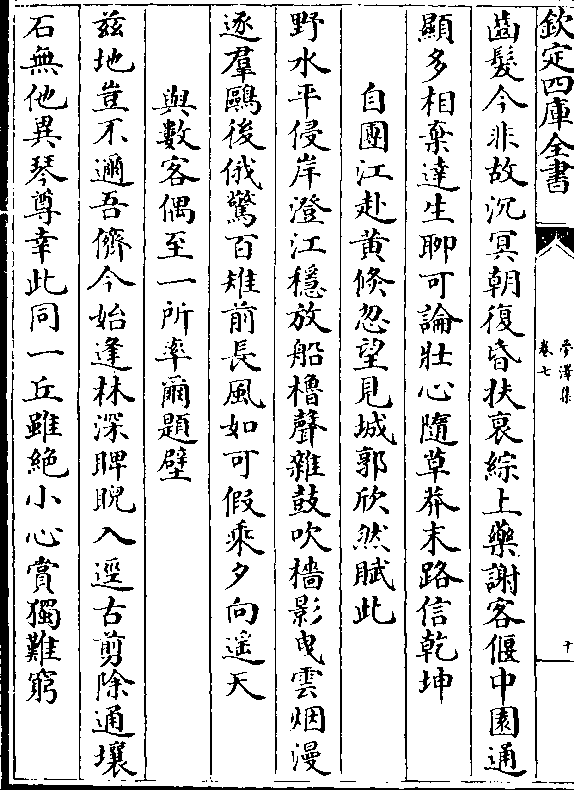 欽定四庫全書
夢澤集
卷七
十
齒髮今非故沉冥朝復昏扶衰綜上藥謝客偃中園通
顯多相棄達生聊可論壯心隨草莽末路信乾坤
自團江赴黄倐忽望見城郭欣然賦此
野水平侵岸澄江穩放船櫓聲雜鼓吹檣影曳雲烟漫
逐羣鷗後俄驚百雉前長風如可假乘夕向遥天
與數客偶至一所率爾題壁
兹地豈不邇吾儕今始逢林深睥睨入逕古剪除通壤
石無他異琴尊幸此同一丘雖絶小心賞獨難窮